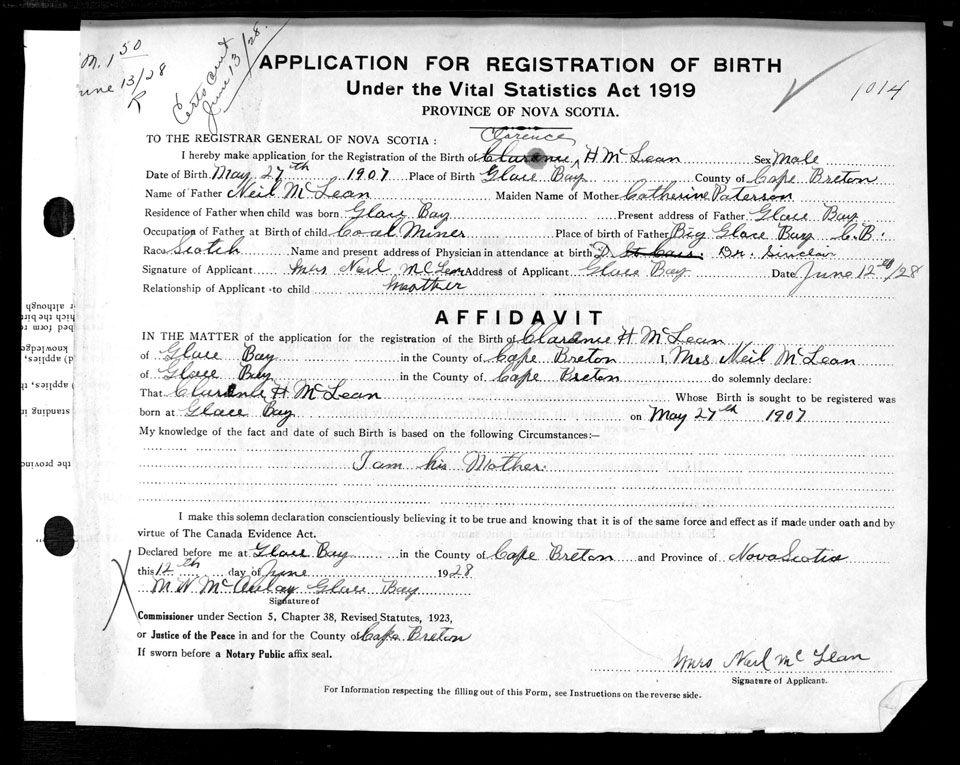 M. 1 50
June 13/28
R
Certs Cent
June 13/28.
1014
APPLICATION FOR REGISTRATION OF BIRTH
Under the Vital Statistics Act 1919
PROVINCE OF NOVA SCOTIA.
TO THE REGISTRAR GENERAL OF NOVA SCOTIA :
Clarence
I hereby make application for the Registration of the Birth of Clarence, H McLean Sex Male
Date of Birth May 27th 1907 Place of Birth Glace Bay County of Cape Breton
Name of Father Neil McLean Maiden Name of Mother Catherine Paterson
Residence of Father when child was born Glace Bay Present address of Father Glace Bay
Occupation of Father at Birth of child Coal Miner Place of birth of Father Big Glace Bay C.B.
Race Scotch Name and present address of Physician in attendance at birth D. Dr. Sinclair
Signature of Applicant Mrs Neil McLean Address of Applicant Glace Bay Date June 12 /28
Relationship of Applicant to child Mother
AFFIDAVIT
IN THE MATTER of the application for the registration of the Birth of Clarence H McLean
of Glace Bay in the County of Cape Breton I, Mrs Neil McLean
of Glace Bay in the County of Cape Breton do solemnly declare:
That Clarence H McLean Whose Birth is sought to be registered was
born at Glace Bay on May 27th 1907
My knowledge of the fact and date of such Birth is based on the following Circumstances:—
I am his Mother.
I make this solemn declaration conscientiously believing it to be true and knowing that it is of the same force and effect as if made under oath and by
virtue of The Canada Evidence Act.
Declared before me at Glace Bay in the County of Cape Breton and Province of Nova Scotia
this 12th day of June 1928
M N McAulay Glace Bay
Signature of
Commissioner under Section 5, Chapter 38, Revised Statutes, 1923,
or Justice of the Peace in and for the County of Cape Breton
If sworn before a Notary Public affix seal.
Mrs Neil McLean
Signature of Applicant.
For Information respecting the filling out of this Form, see Instructions on the reverse side.